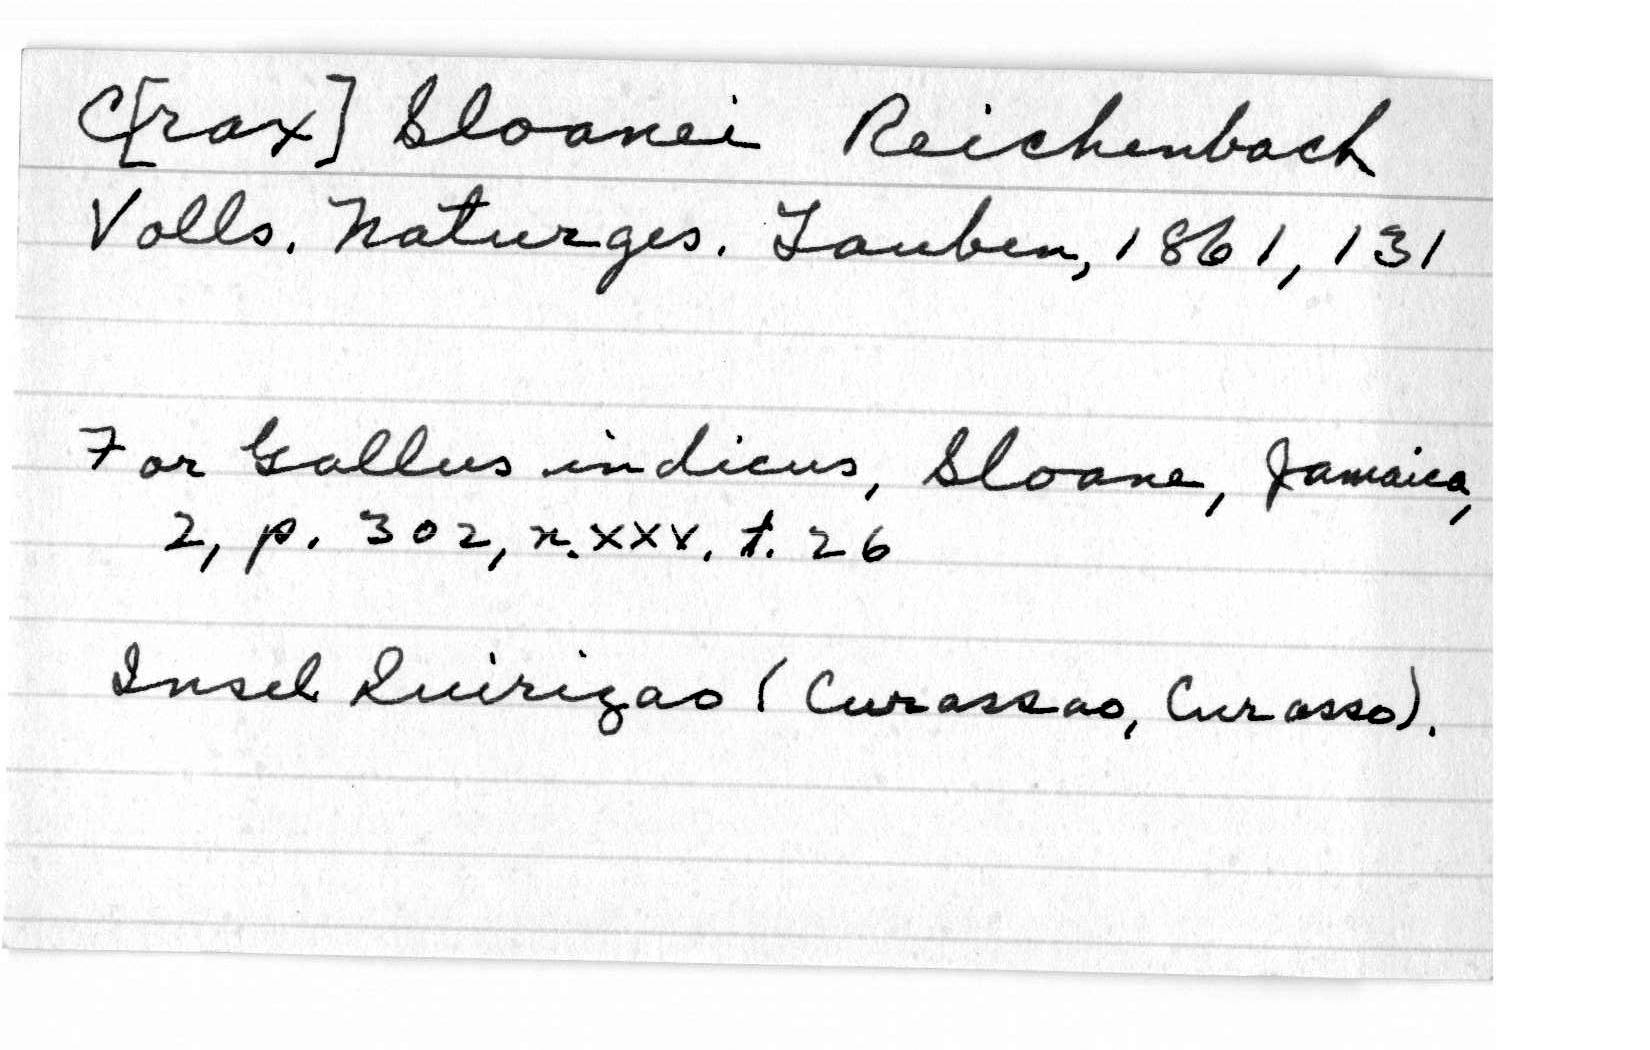 C[rax] Sloanei Reichenbach
Volls. Naturges. Tauben, 1861, 131
For Gallus indicus, Sloane, Jamaica,
2, p. 302, n. XXV. t. 26
Insel Quirizao (Curassao, Curasso).